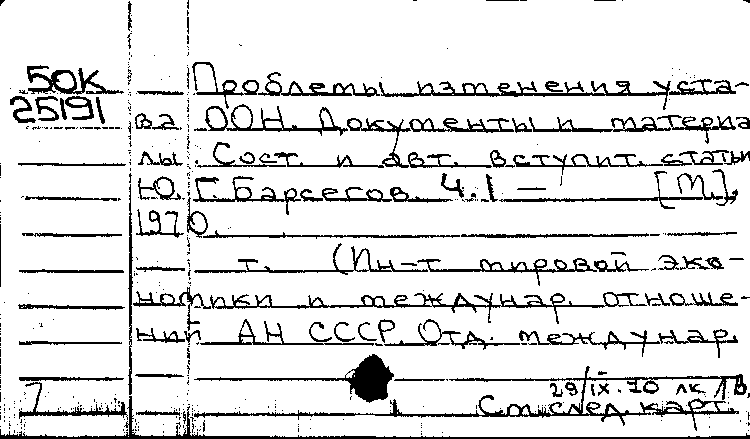 50К
25191
Проблемы изменения уста-
ва ООН. Документы и материа-
лы. Сост. и авт. вступит. статьи
Ю. Г. Барсегов. Ч.1 — [М.],
1970.
т. (Ин-т мировой эко-
номики и междунар. отноше-
ний АН СССР. Отд. междунар.
29/IX.70 лк 1В.
См. след. карт.